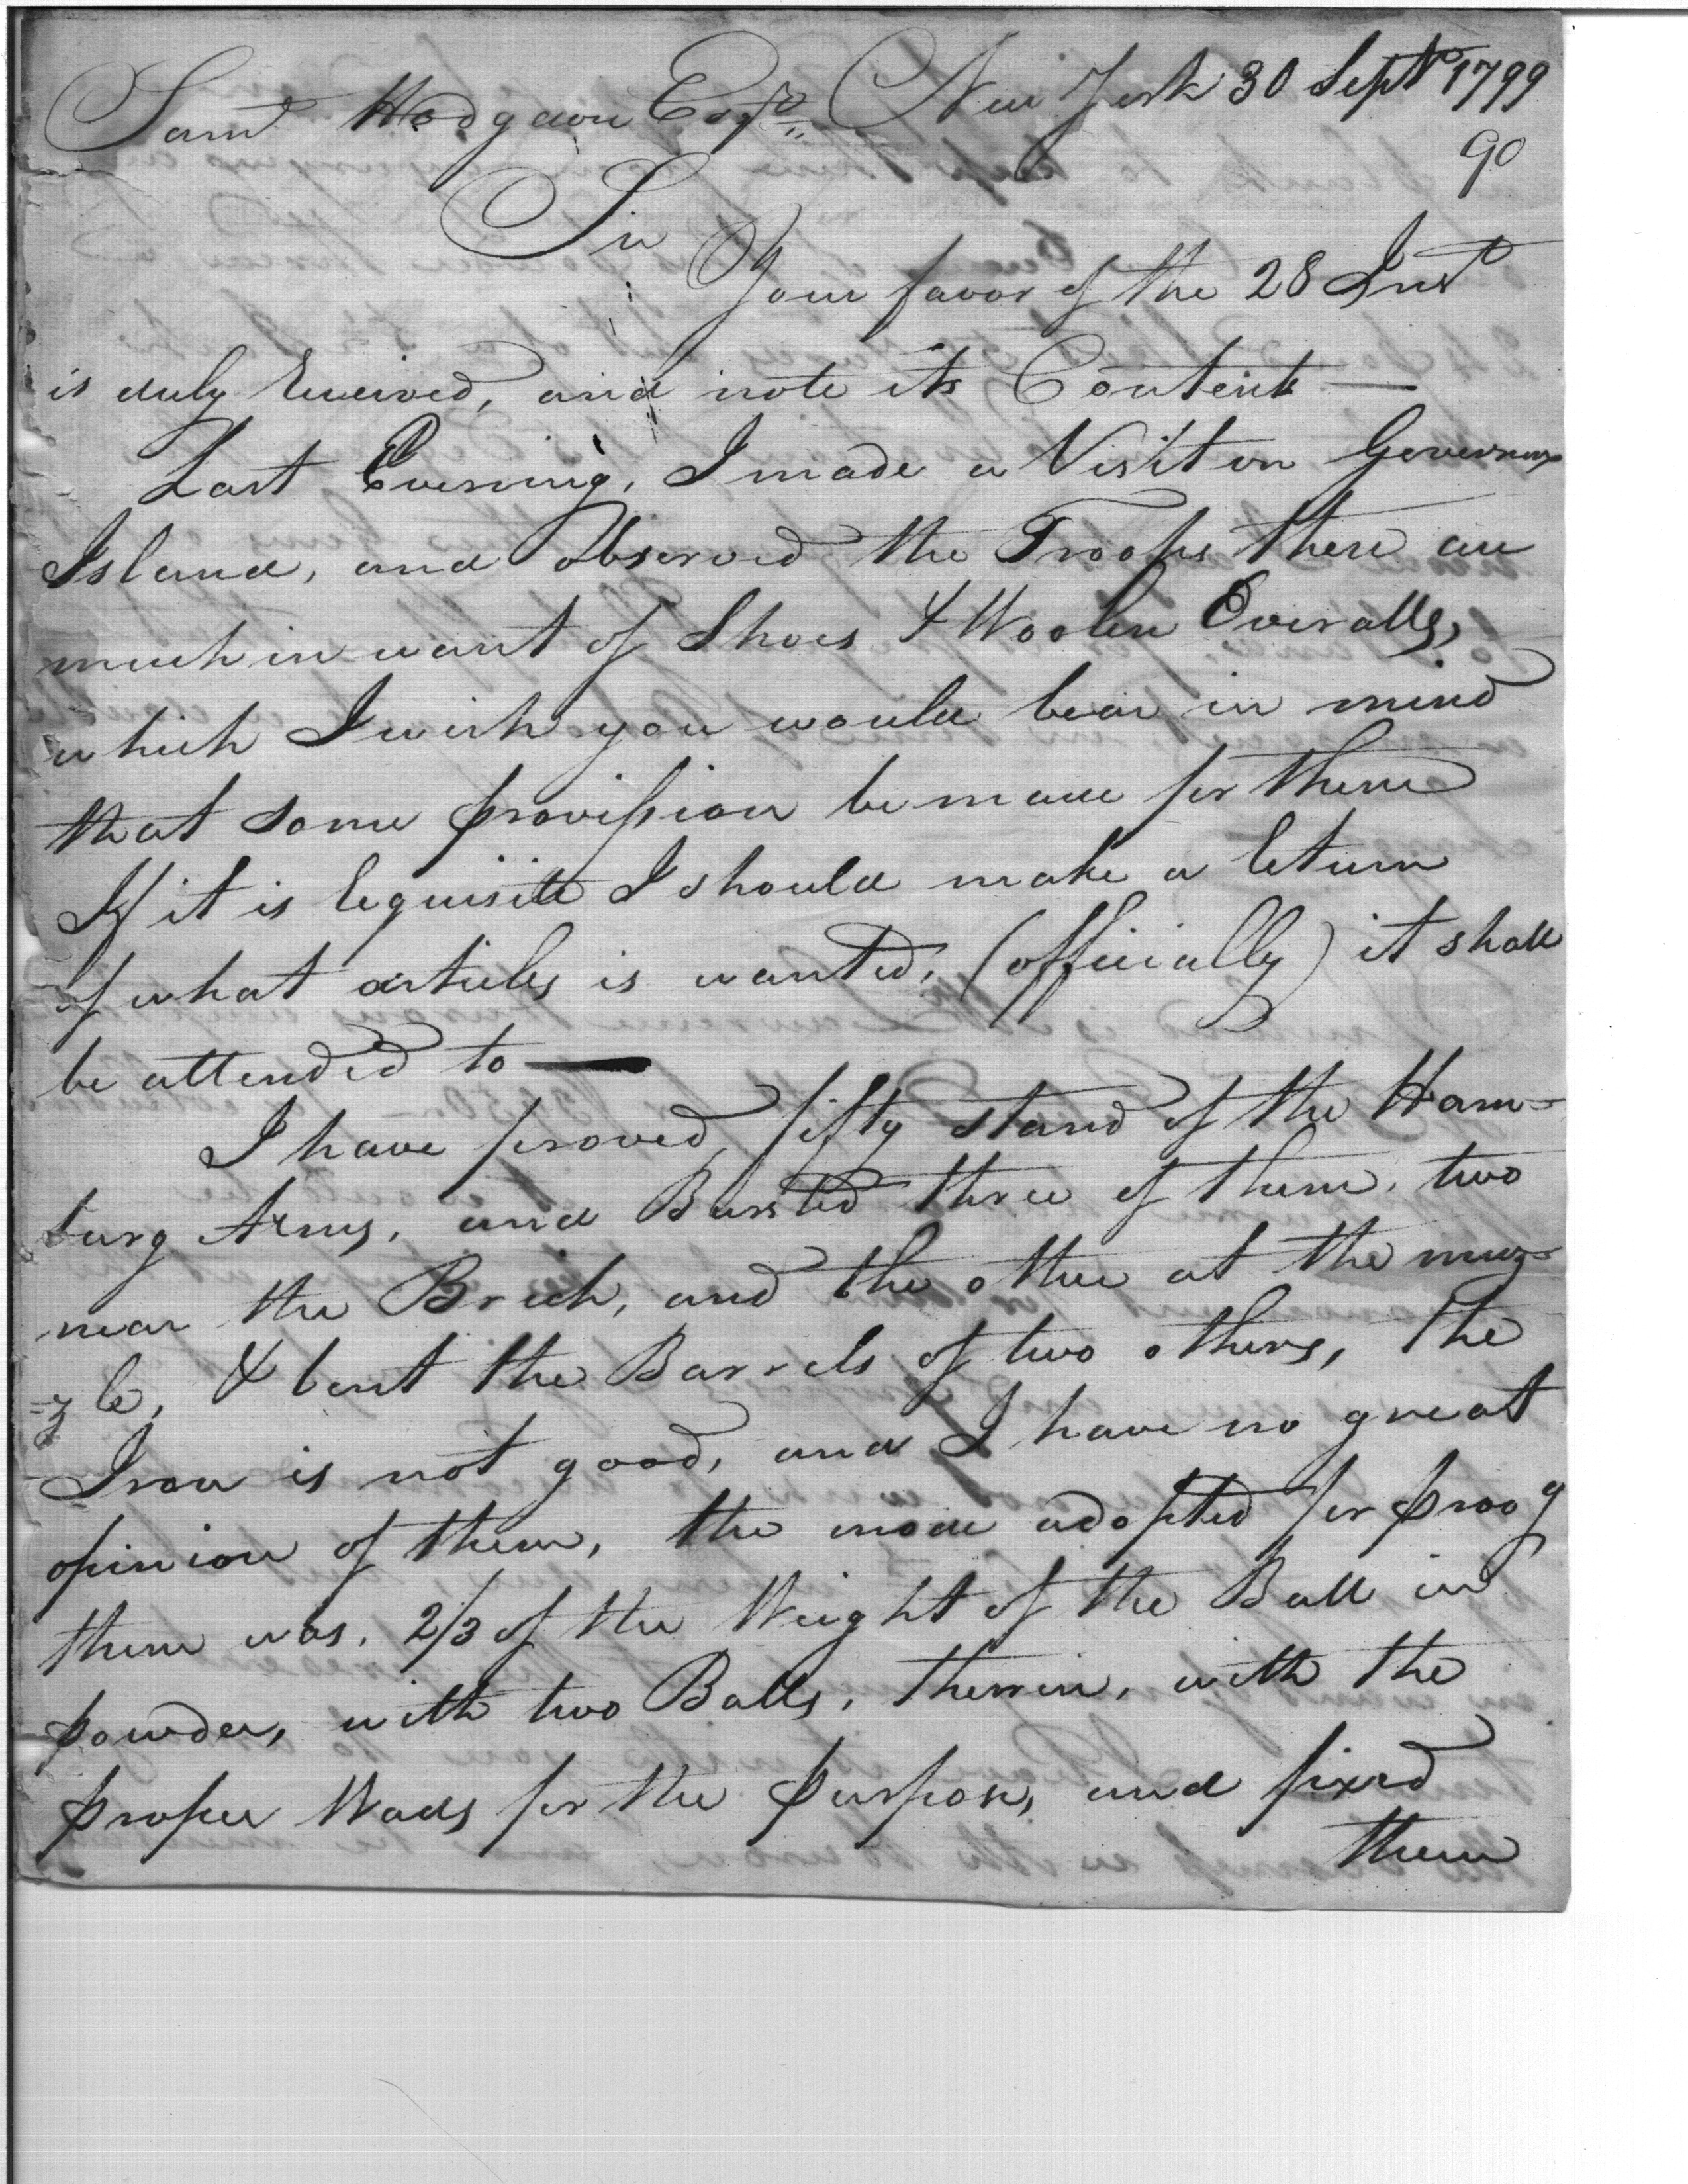 Saml Hodgdon Esqr New York 30 Septr 1799
90
Sir
Your favor of the 28 Inst
is duly received, and note its Contents —
Last Evening, I made a Visit on Governors
Island, and observed the Troops there are
much in want of Shoes & Woolen Overalls,
which I wish you would bear in mind
that some provission be made for them
If it is requisite I should make a return
of what articles is wanted, (officially) it shall
be attended to —
I have proved, fifty stand of the Ham=
burg Arms, and Bursted three of them, two
near the Brech, and the other at the muz=
=zle, & bent the Barrels of two others, the
Iron is not good, and I have no great
opinion of them, the mode adopted for proog
them was, 2/3 of the Weight of the Ball in
powder, with two Balls, therein, with the
proper Wads for the purpose, and fixed
them